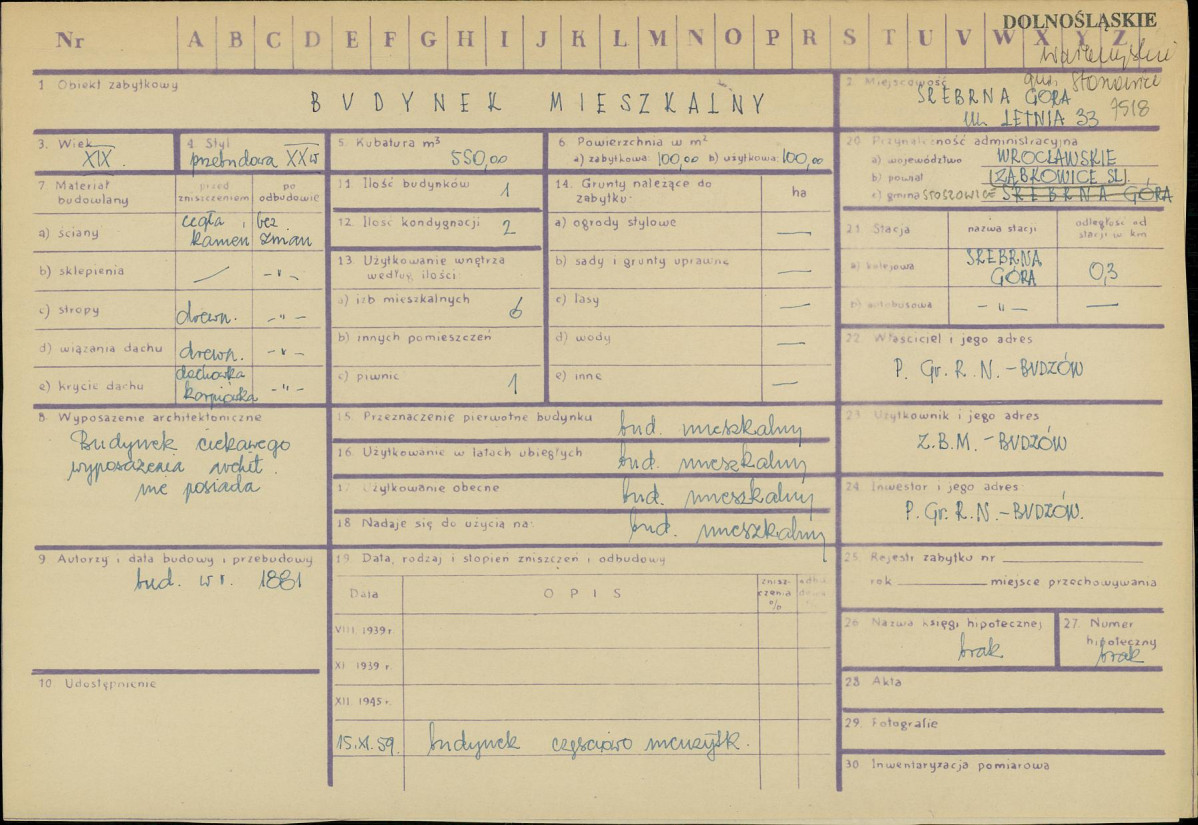 DOLNOŚLĄSKIE
Nr A B C D E F G H I J K L M N O P R S T U V W X Y Z
1 Obiekt zabytkowy
BUDYNEK MIESZKALNY
2. Miejscowość
gm. Stoszowice
SREBRNA GÓRA
UL. LETNIA 33
7518
3. Wiek
XIX.
4. Styl
przebudowa XX w
5. Kubatura m³
550,00
6. Powierzchnia w m²
a) zabytkowa: 100,00 b) użytkowa: 100,00
7 Materiał budowlany
przed zniszczeniem
po odbudowie
a) ściany
cegła, kamień
bez zmian
b) sklepienia
/ -"-
c) stropy
drewn. -"-
d) wiązania dachu
drewn. -"-
e) krycie dachu
dachówka karpiówka
-"-
8 Wyposażenie architektoniczne
Budynek ciekawego
wyposażenia archit.
nie posiada
9 Autorzy i data budowy i przebudowy
bud. w r. 1881
10 Udostępnienie
11 Ilość budynków
1
12. Ilość kondygnacji
2
13. Użytkowanie wnętrza
według ilości:
a) izb mieszkalnych
6
b) innych pomieszczeń
c) piwnic
1
14. Grunty należące do
zabytku:
ha
a) ogrody stylowe
—
b) sady i grunty uprawne
—
c) lasy
—
d) wody
—
e) inne
—
15. Przeznaczenie pierwotne budynku
bud. mieszkalny
16. Użytkowanie w latach ubiegłych
bud. mieszkalny
17 Użytkowanie obecne
bud. mieszkalny
18 Nadaje się do użycia na:
bud. mieszkalny
19. Data, rodzaj i stopień zniszczeń i odbudowy
Data
OPIS
zniszczenia %
VIII. 1939 r.
XI 1939 r.
XII. 1945 r.
15.XI.59. budynek częściowo nieużytk.
20 Przynależność administracyjna
a) województwo WROCŁAWSKIE
b) powiat ZĄBKOWICE ŚL.
c) gmina STOSZOWICE SREBRNA GÓRA
21. Stacja
nazwa stacji
odległość od
stacji w km
a) kolejowa
SREBRNA
GÓRA
0,3
b) autobusowa
-"- —
22. Właściciel i jego adres
P. Gr. R. N. – BUDZÓW
23. Użytkownik i jego adres
Z.B.M. – BUDZÓW
24. Inwestor i jego adres:
P. Gr. R. N. – BUDZÓW.
25. Rejestr zabytku nr
rok miejsce przechowywania
26 Nazwa księgi hipotecznej
brak
27. Numer
hipoteczny
brak
28. Akta
29. Fotografie
30. Inwentaryzacja pomiarowa